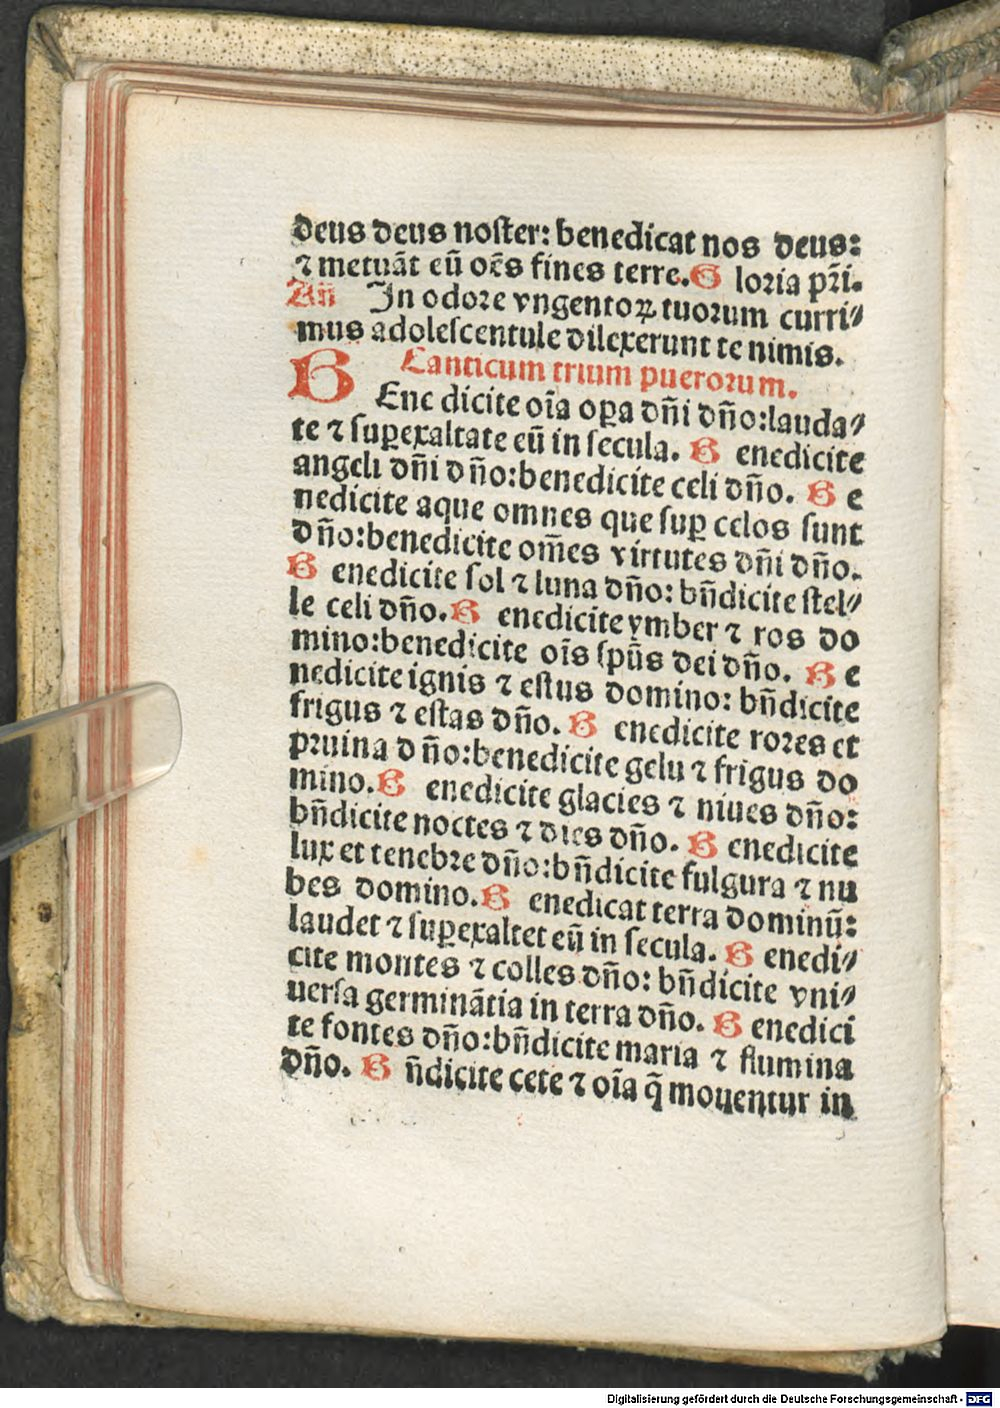 deus deus noſter: benedicat nos deus:
⁊ metuāt eū oēs fines terre. Gloria pr̄i.
An̄ In odoꝛe vngentoꝝ tuoꝛum curri⸗
mus adoleſcentule dilexerunt te nimis.
Canticum trium pueroꝛum.
BEne dicite oīa oꝑa dn̄i dn̄o: lauda⸗
te ⁊ ſuꝑexaltate eū in ſecula. Benedicite
angeli dn̄i dn̄o: benedicite celi dn̄o. Be
nedicite aque omnes que ſuꝑ celos ſunt
dn̄o: benedicite om̄es virtutes dn̄i dn̄o.
Benedicite ſol ⁊ luna dn̄o: bn̄dicite ſtel⸗
le celi dn̄o. Benedicite ymber ⁊ ros do
mino: benedicite oīs ſpūs dei dn̄o. Be
nedicite ignis ⁊ eſtus domino: bn̄dicite
frigus ⁊ eſtas dn̄o. Benedicite roꝛes et
pꝛuina dn̄o: benedicite gelu ⁊ frigus do
mino. Benedicite glacies ⁊ niues dn̄o:
bn̄dicite noctes ⁊ dies dn̄o. Benedicite
lux et tenebꝛe dn̄o: bn̄dicite fulgura ⁊ nu
bes domino. Benedicat terra dominū:
laudet ⁊ ſuꝑexaltet eū in ſecula. Benedi⸗
cite montes ⁊ colles dn̄o: bn̄dicite vni⸗
uerſa germinātia in terra dn̄o. Benedici
te fontes dn̄o: bn̄dicite maria ⁊ flumina
dn̄o. Bn̄dicite cete ⁊ oīa q̄ mouentur in
Digitalisierung gefördert durch die Deutsche Forschungsgemeinschaft - DFG